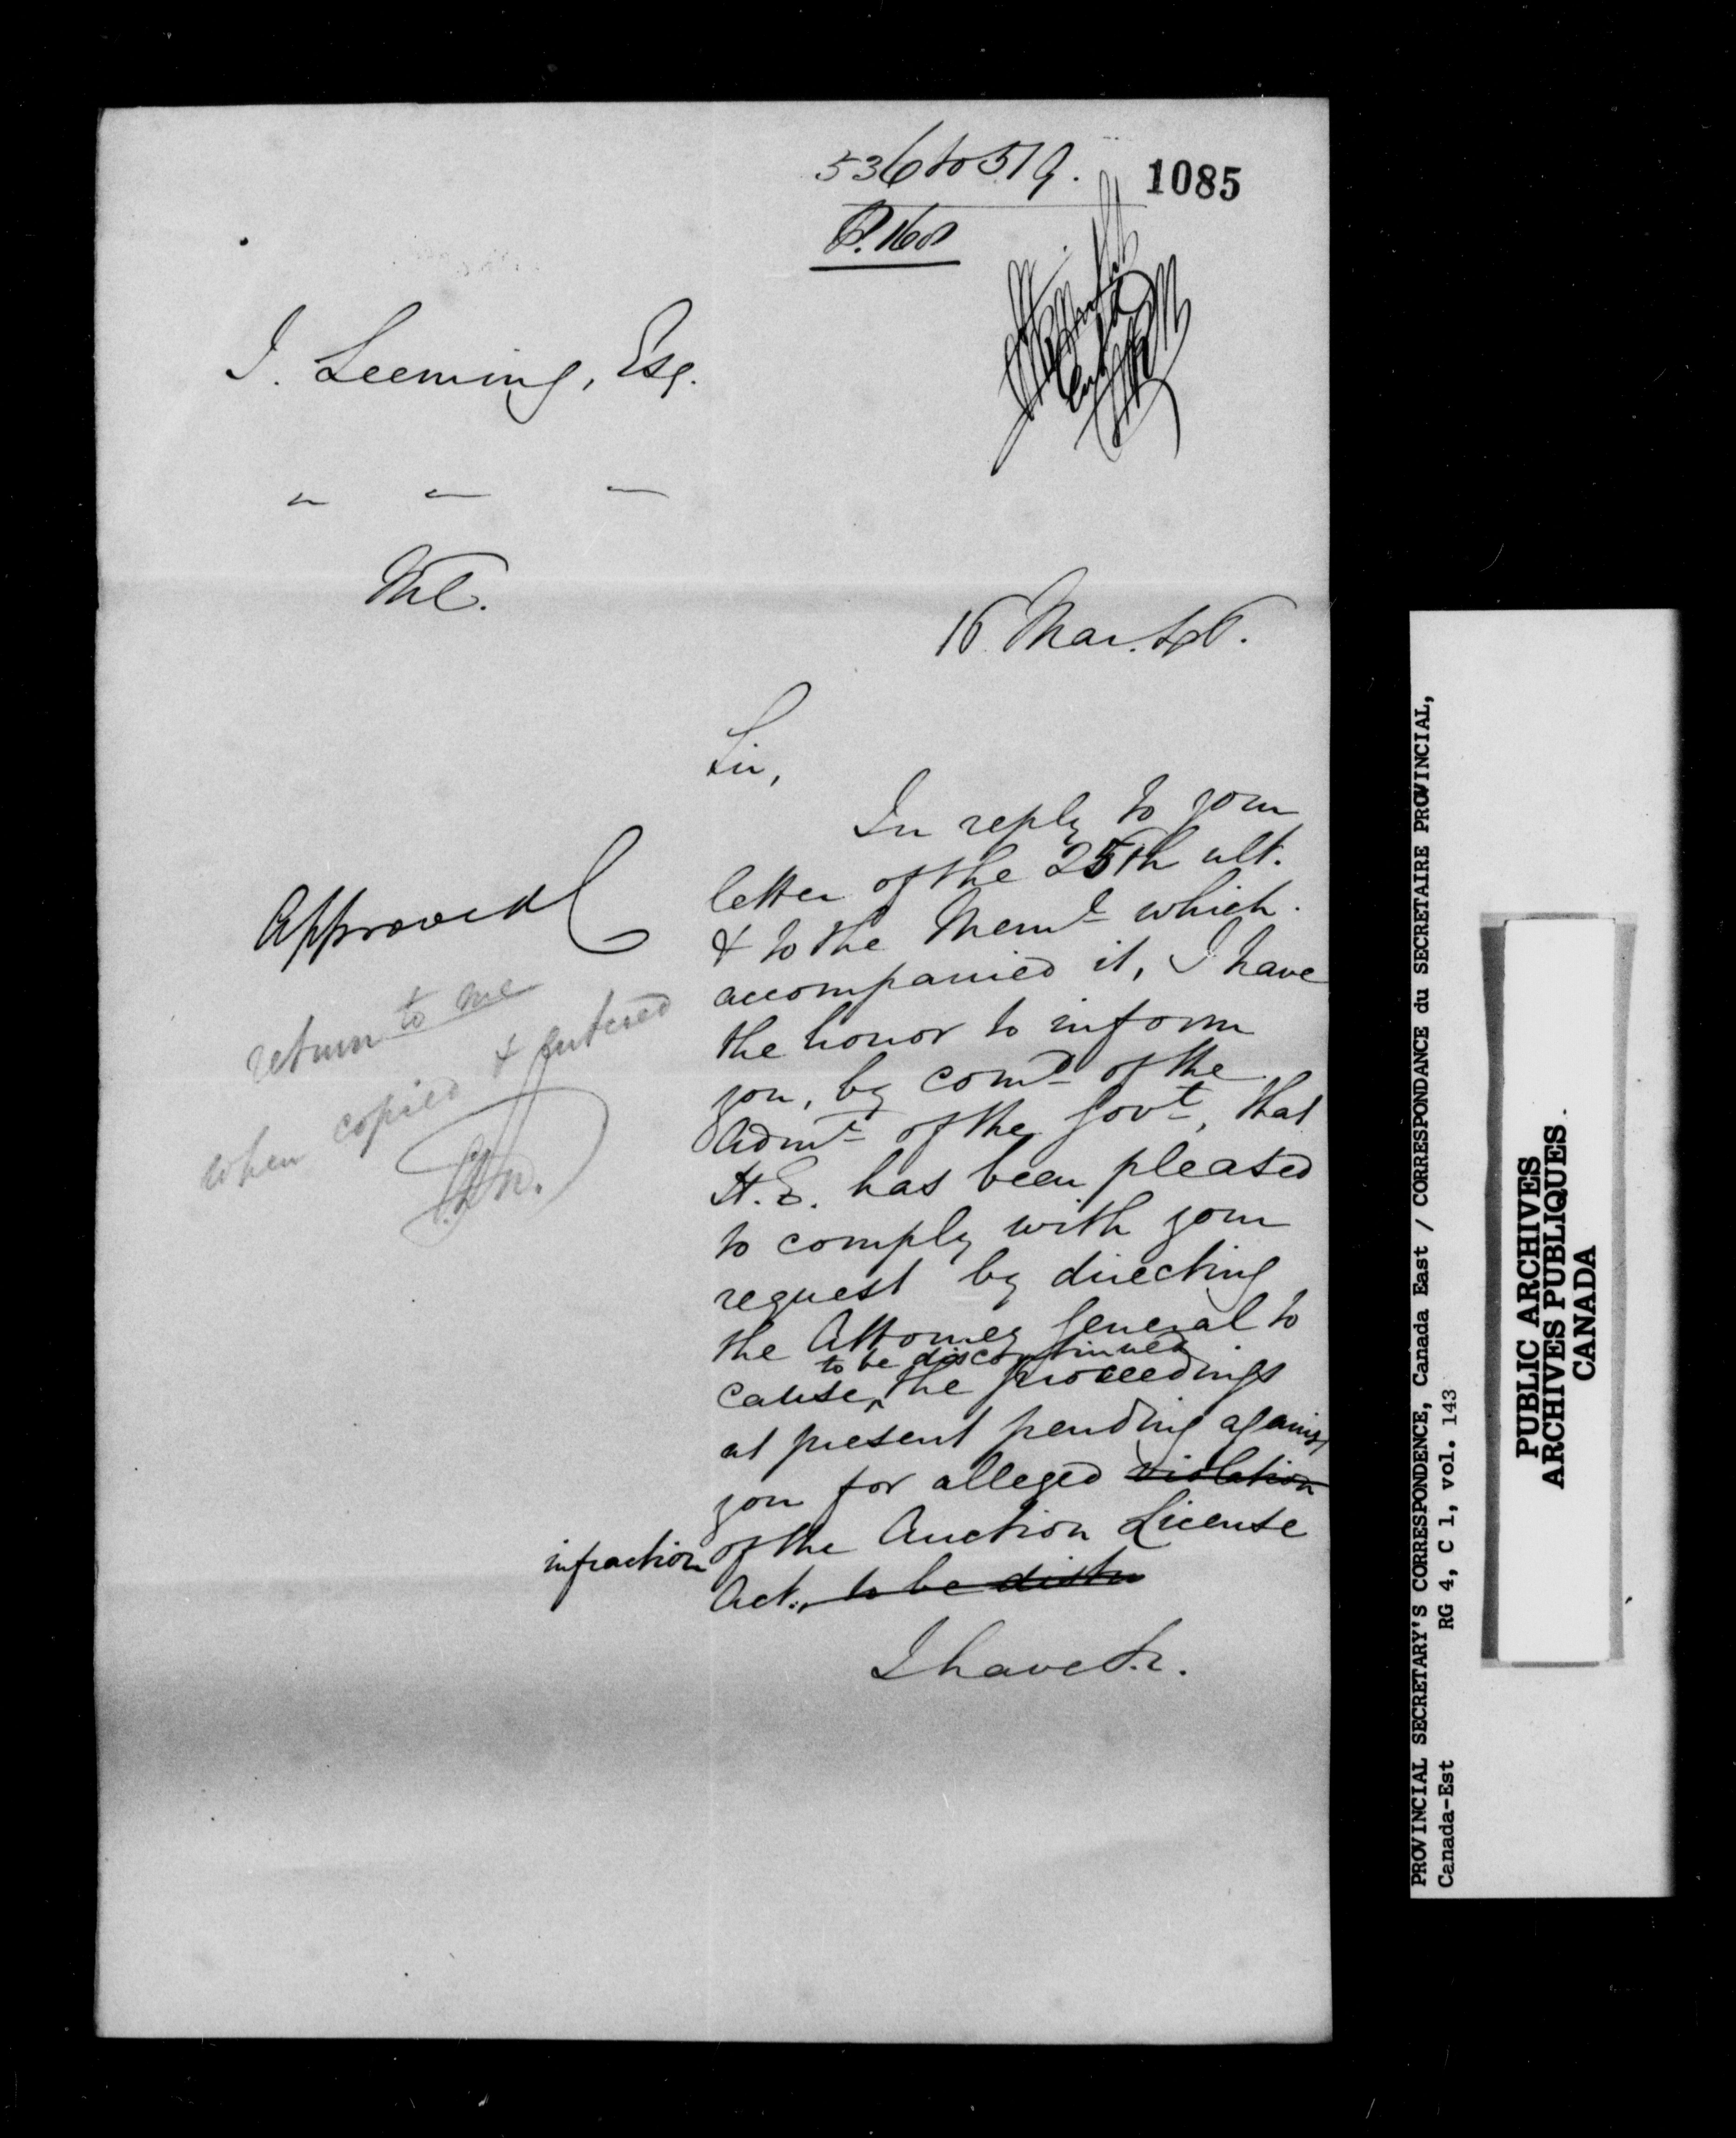 536 to 519.
1085
P. 160
J. Leeming, Esq.
" " "
Ml.
16 Mar. 46.
Sir,
In reply to your
letter of the 25th ult.
& to the Meml which
accompanied it, I have
the honor to inform
you, by comd of the
Admr of the Govt, that
H.E. has been pleased
to comply with your
request by directing
the Attorney General to
to be discontinued
cause ^ the proceedings
at present pending against
you for alleged violation
infraction of the Auction License
Act., to be discon
I have &c.
Approved
return to me
when copied & entered
PROVINCIAL SECRETARY'S CORRESPONDENCE, Canada East / CORRESPONDANCE du SECRETAIRE PROVINCIAL,
Canada-Est RG 4, C 1, vol. 143
PUBLIC ARCHIVES
ARCHIVES PUBLIQUES
CANADA